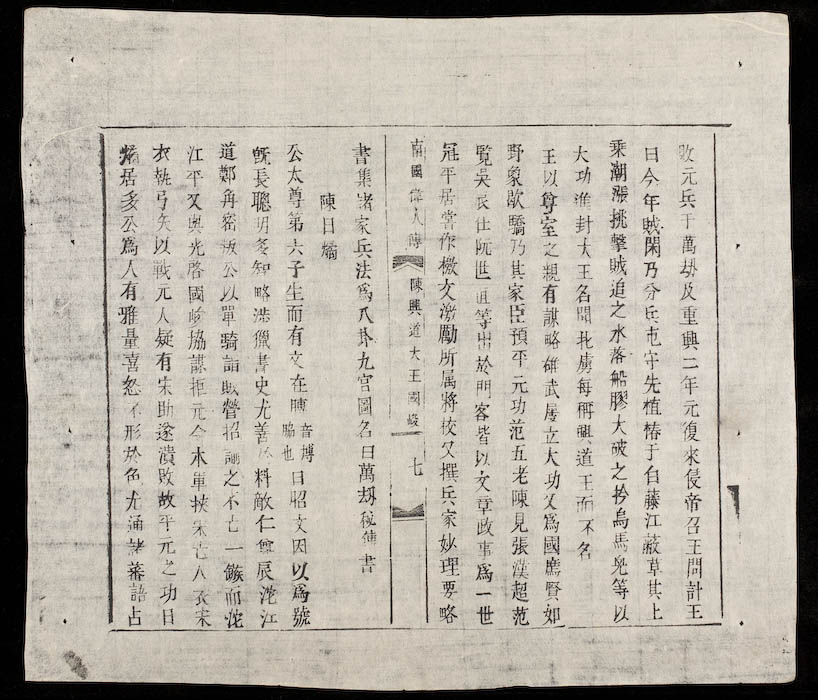 敗元兵于萬劫及重興二年元復來侵帝召王問計王
曰今年賊閑乃分兵屯守先植椿于白藤江蔽草其上
乘潮漲挑擊賊追之水落船膠大破之擒烏馬兒等以
大功進封大王名聞北虜每稱興道王而不名
王以尊室之親有謀略雄武屢立大功又爲國薦賢如
野象歇驕乃其家臣預平元功范五老陳見張漢超范
覽吳辰仕阮世直等出於門客皆以文章政事爲一世
冠平居嘗作檄文激勵所属將校又撰兵家妙理要略
南國偉人傳 陳興道大王國峻 七
書集諸家兵法爲八卦九宮圖名曰萬劫秘傳書
陳日燏
公太尊第六子生而有文在膊音博脇也曰昭文因以爲號
旣長聰明多知略浩獵書史尤善於料敵仁尊辰沱江
道鄭角密叛公以單騎詣賊營招諭之不亡一鏃而沱
江平又與光啓國峻協謀拒元令木軍挾宋亡人衣宋
衣執弓矢以戰元人疑有宋助遂潰敗故平元之功日
燏居多公爲人有雅量喜怒不形於色尤通諸蕃語占